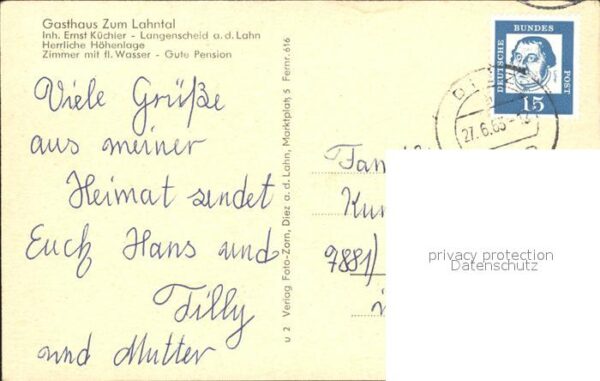 Gasthaus Zum Lahntal
Inh. Ernst Küchler - Langenscheid a. d. Lahn
Herrliche Höhenlage
Zimmer mit fl. Wasser - Gute Pension
Viele Grüße
aus meiner
Heimat sendet
Euch Hans und
Tilly
und Mutter
u 2 Verlag Foto-Zorn, Diez a. d. Lahn, Marktplatz 5 Fernr. 616
DEUTSCHE
BUNDES
POST
15
27.6.63
Fam
Kun
7881)
privacy protection
Datenschutz